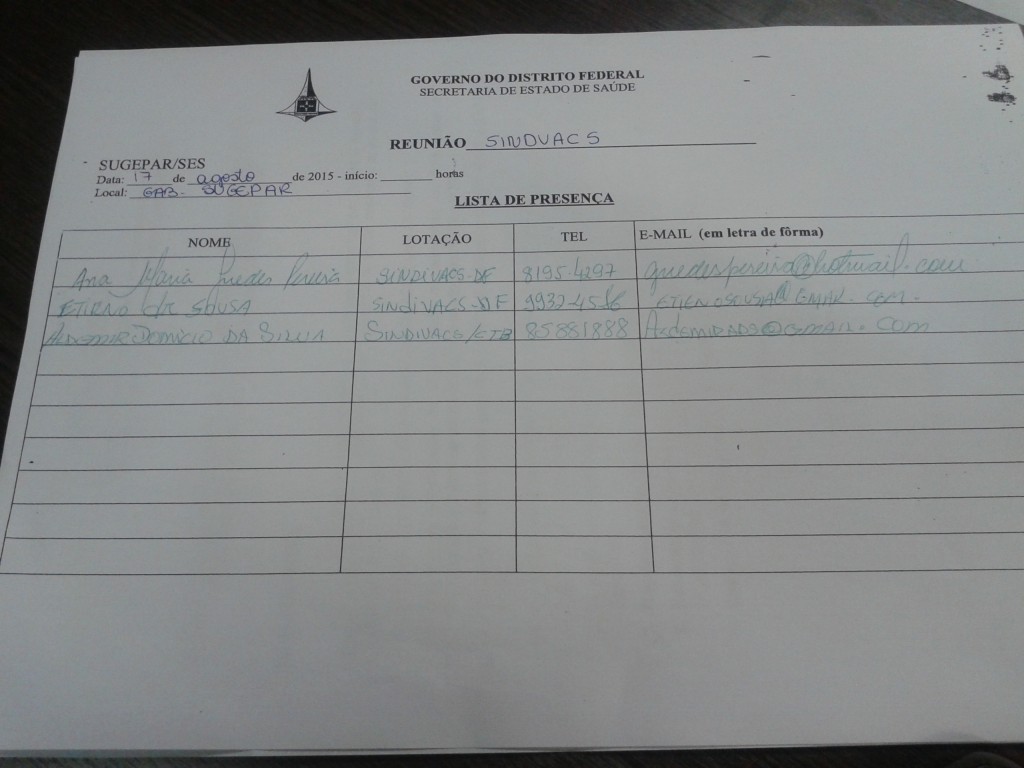 GOVERNO DO DISTRITO FEDERAL
SECRETARIA DE ESTADO DE SAÚDE
REUNIÃO SINDVACS
SUGEPAR/SES
Data: 17 de agosto de 2015 - início: ______ horas
Local: GAB. SUGEPAR
LISTA DE PRESENÇA
NOME LOTAÇÃO TEL E-MAIL (em letra de fôrma)
Ana Maria Guedes Pereira SINDIVACS-DF 8195-4297 guedespereira@hotmail.com
ETIENO DE SOUSA SINDIVACS-DF ETIENOSOUSA@GMAIL.COM.
DA SILVA SINDIVACS/CTB 85881888